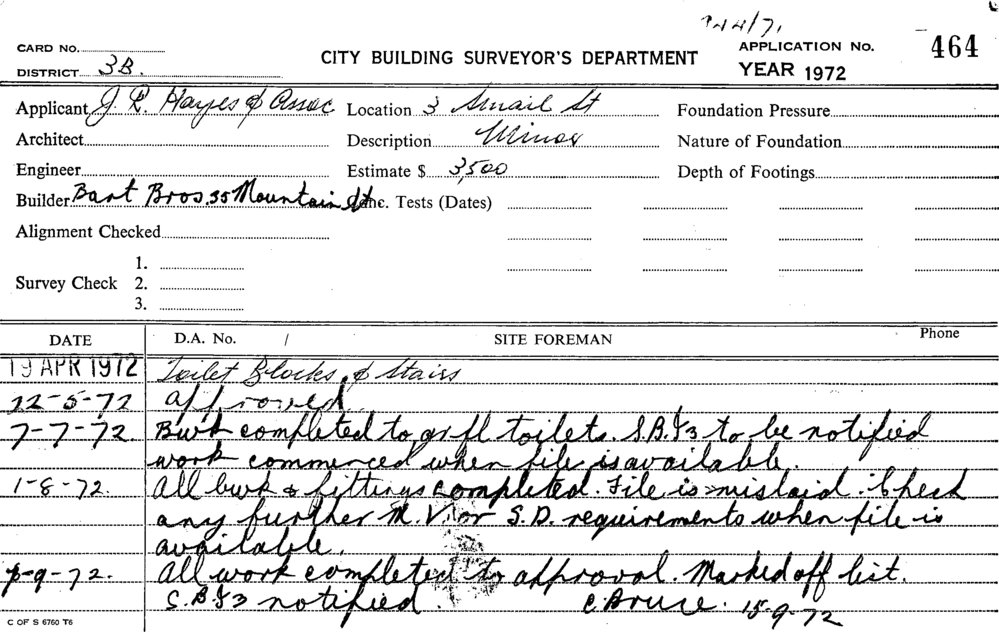 CARD No.
DISTRICT 3B.
CITY BUILDING SURVEYOR'S DEPARTMENT
APPLICATION No. 464
YEAR 1972
Applicant J. R. Hayes & Assoc Location 3 Smail St Foundation Pressure
Architect Description Minor Nature of Foundation
Engineer Estimate $ 3,500 Depth of Footings
Builder Bart Bros. 35 Mountain St Conc. Tests (Dates)
Alignment Checked
Survey Check 1.
2.
3.
DATE D.A. No. / SITE FOREMAN Phone
19 APR 1972 Toilet Blocks & Stairs
12-5-72 approved
7-7-72. Bwk completed to gr fl toilets. S.B.I3 to be notified
work commenced when file is available.
1-8-72. All bwk & fittings completed. File is mislaid. Check
any further M.V. or S.D. requirements when file is
available.
-9-72. All work completed to approval. Marked off list.
S.B.I3 notified. C. Bruce. 15-9-72
C OF S 6760 T6